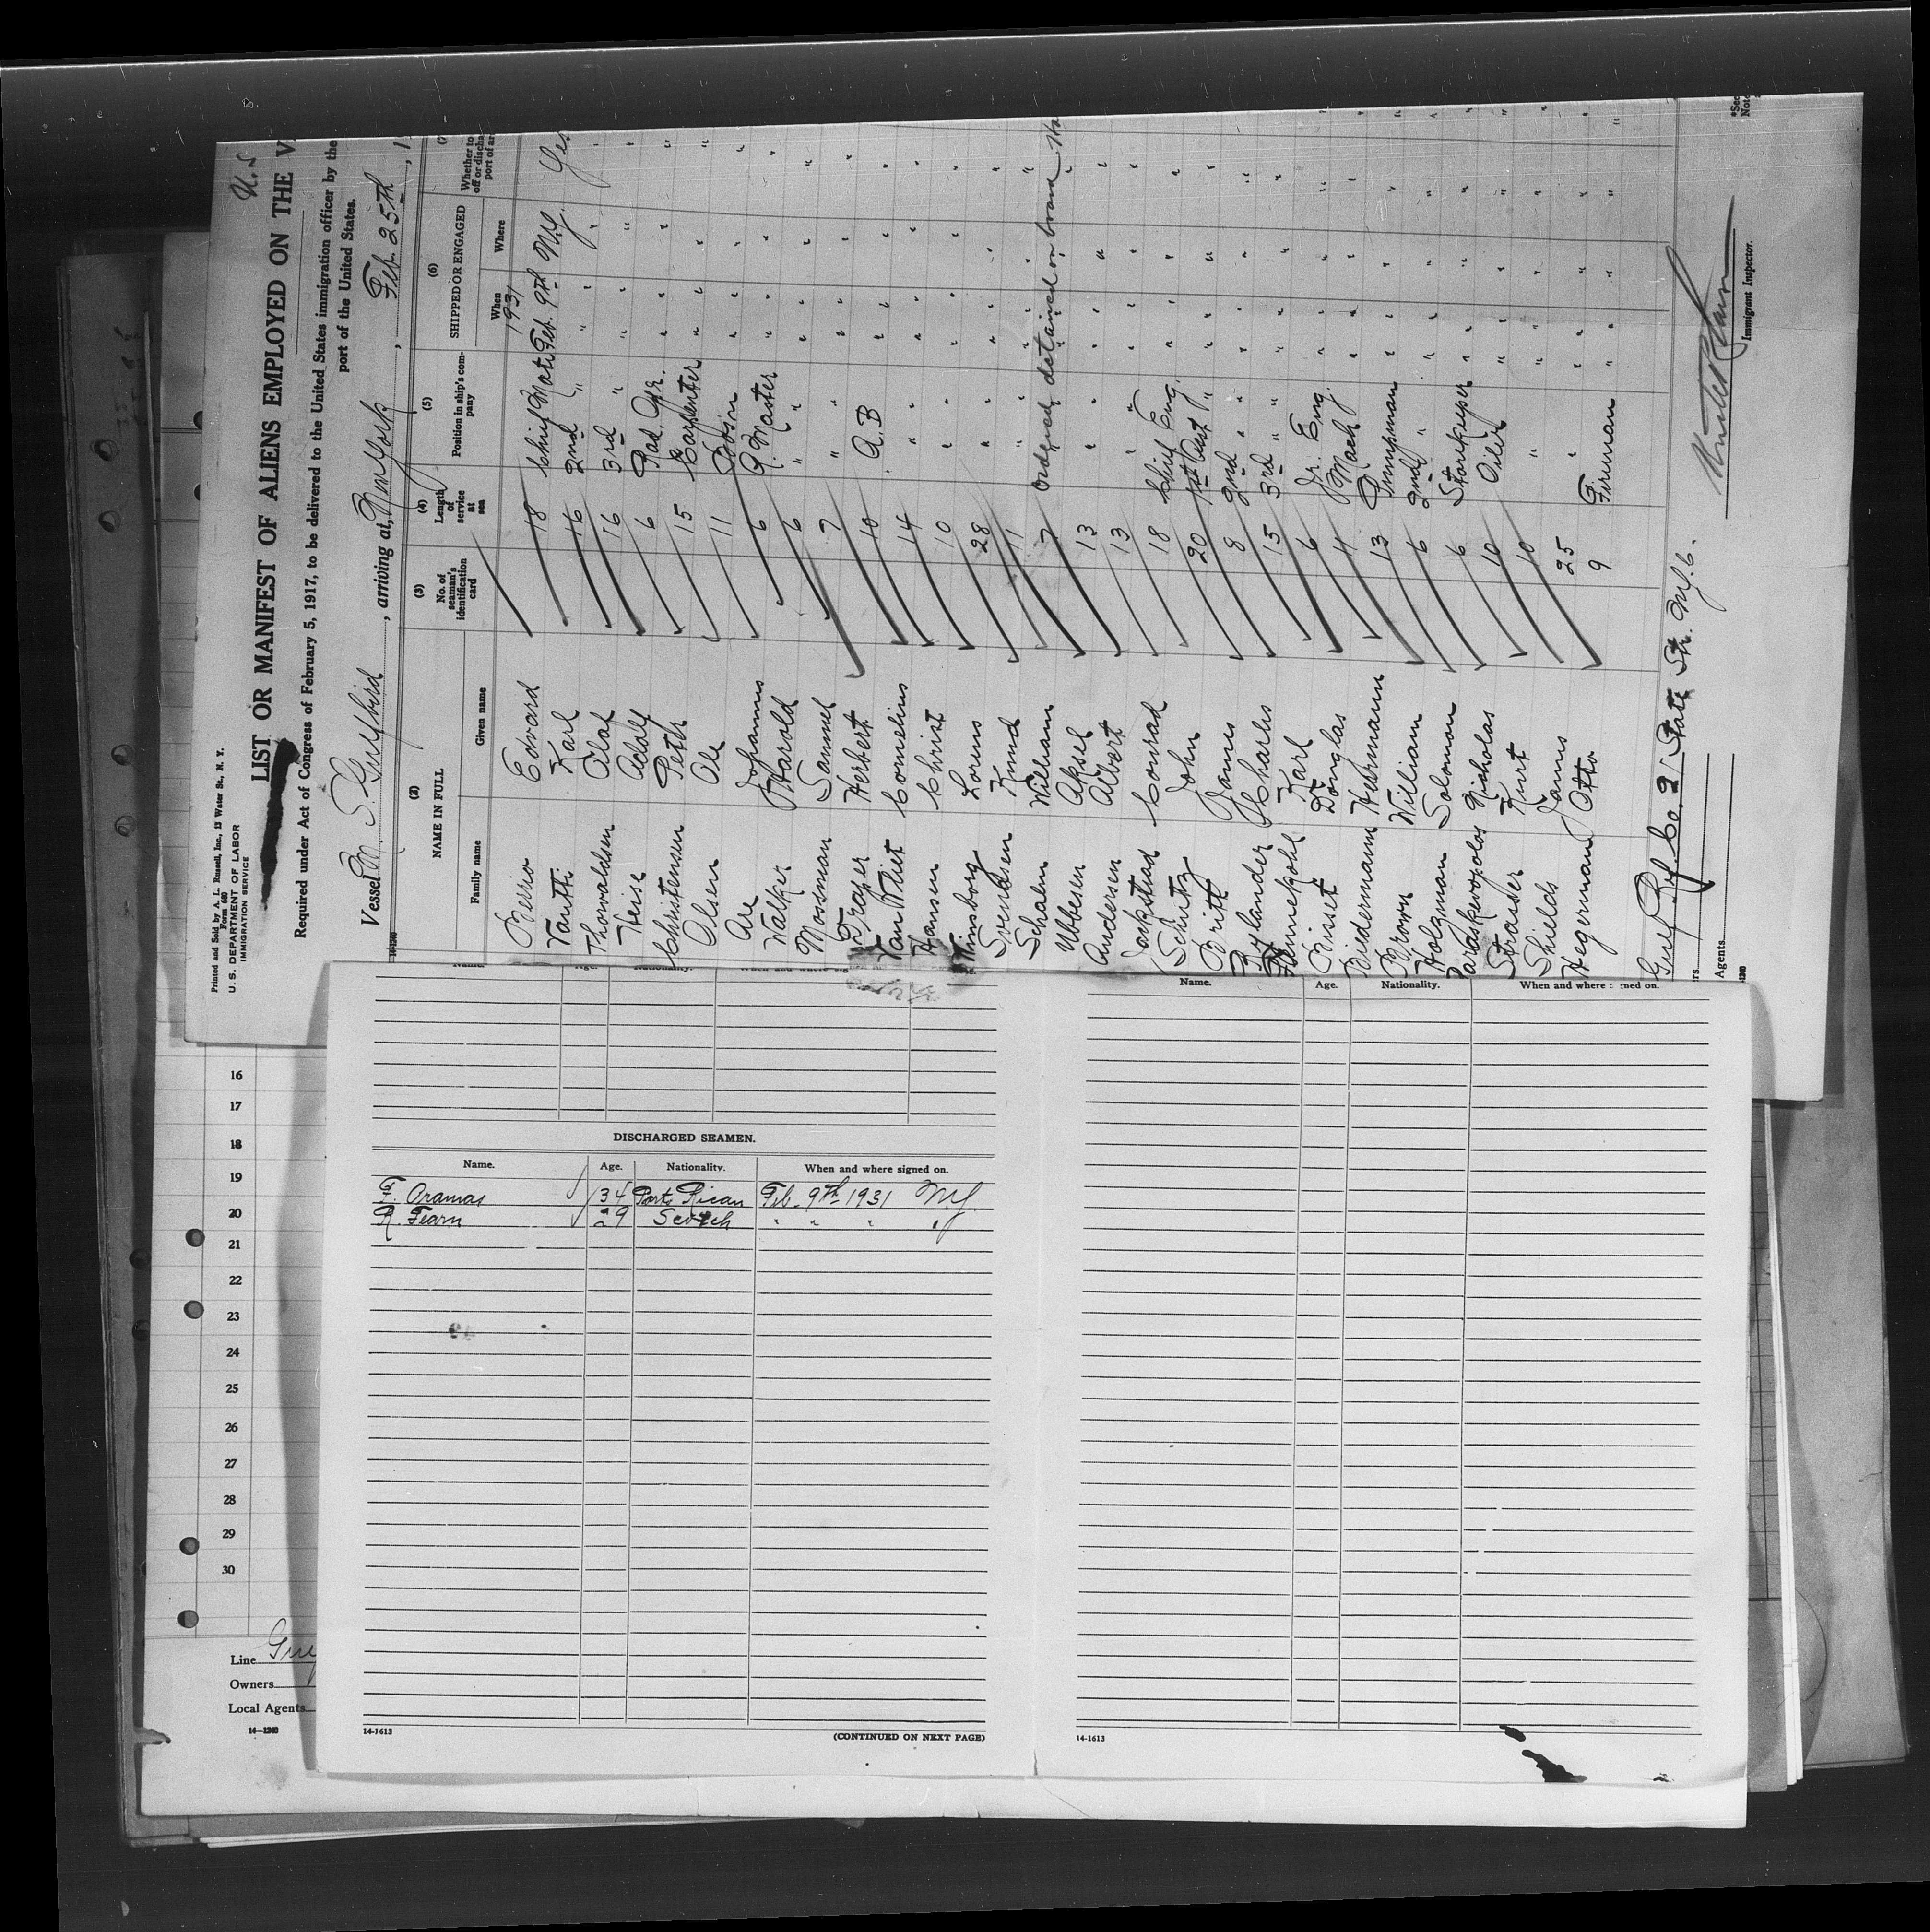 Printed and Sold by A. L. Russell, Inc., 13 Water St., N. Y.
Form 680
U. S. DEPARTMENT OF LABOR
IMMIGRATION SERVICE
LIST OR MANIFEST OF ALIENS EMPLOYED ON THE V
Required under Act of Congress of February 5, 1917, to be delivered to the United States immigration officer by the
port of the United States.
Vessel M. S. Gulfbird, arriving at, New York, Feb. 25th, 1
(2) (3) (4) (5) (6)
NAME IN FULL No. of seaman's identification card Length of service at sea Position in ship's company SHIPPED OR ENGAGED Whether to
Family name Given name When Where
1931
Edward 18 Chief Mate Feb. 9th N.Y. Yes
Karl 16 2nd " " " "
Thorwaldsen Olaf 16 3rd " " " "
Heise Adolf 6 Rad. Opr. " " "
Christensen Peter 15 Carpenter " " "
Olsen Ole 11 Bos'n " " "
Are Johannes 6 Q. Master " " "
Walker Harold 6 " " " "
Mossman Samuel 7 " " " "
Draper Herbert 10 A.B " " "
Van Vliet Cornelius 14 " " " "
Hansen Christ 10 " " " "
Louis 28 " " " "
Svendsen Knud 11 " " " "
Schalm William 7 Ordered detained on board
Ubbesen Aksel 13 " " " "
Andersen Albert 13 " " " "
Conrad 18 Chief Eng. " " "
Schultz John 20 1st Asst " " " "
Britt James 8 2nd " " " "
Bylander Charles 15 3rd " " " "
Karl 6 Jr. Eng. " " "
Bisset Douglas 4 Mach. " " "
Biedermann Hermann 13 Pumpman " " "
Brown William 6 2nd " " " "
Holzman Solomon 6 Storekeeper " " "
Paraskevopolos Nicholas 10 Oiler " " "
Strasser Kurt 10 " " " "
Shields James 25 " " " "
Hegerman Otto 9 Fireman " " "
Gulf Rf. Co. 21 State Str. N.Y.C.
Immigrant Inspector.
Agents
16
17
18
19
20
21
22
23
24
25
26
27
28
29
30
Line
Owners
Local Agents
14—1240
Name. Age. Nationality. When and where signed on.
DISCHARGED SEAMEN.
Name. Age. Nationality. When and where signed on.
F. Oramas 34 Porto Rican Feb. 9th 1931 N.Y.
R. Fearn 29 Scotch " " " "
14-1613
(CONTINUED ON NEXT PAGE)
14-1613